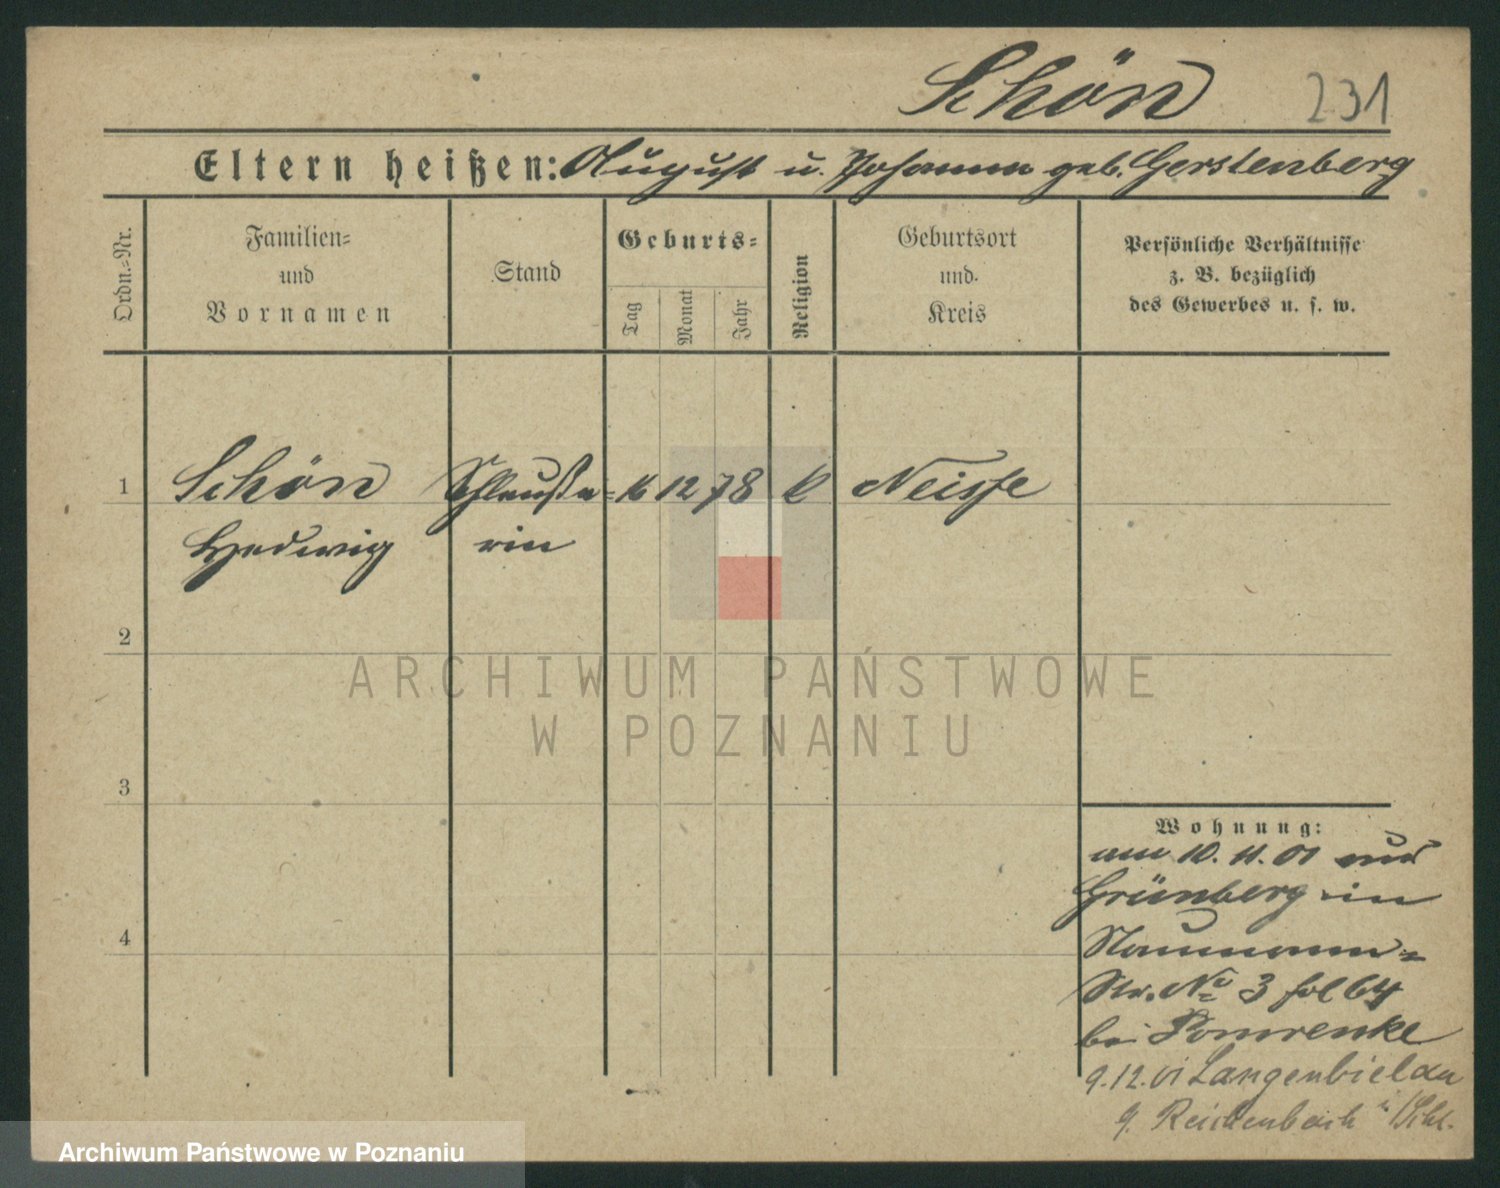 Schön 231
Eltern heißen: August u. Johanna geb. Gerstenberg
Ordn.-Nr.
Familien-
und
Vornamen
Stand
Geburts-
Tag
Monat
Jahr
Religion
Geburtsort
und
Kreis
Persönliche Verhältnisse
z. B. bezüglich
des Gewerbes u. s. w.
1 Schön 16 12 78 k Neisse
Hedwig rin
2
3
4
ARCHIWUM PAŃSTWOWE
W POZNANIU
Wohnung:
am 10. 11. 01 aus
Grünberg in
Naumann-
Str. No 3 fol 64
bei Pomrenke
9.12.01 Langenbielau
Reichenbach i/Schl.
Archiwum Państwowe w Poznaniu